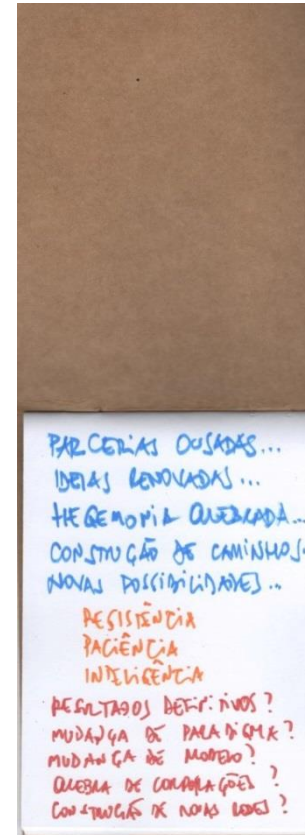 PARCERIAS OUSADAS...
IDEIAS RENOVADAS...
HEGEMONIA QUEBRADA...
CONSTRUÇÃO DE CAMINHOS.
NOVAS POSSIBILIDADES...
RESISTÊNCIA
PACIÊNCIA
INTELIGÊNCIA
RESULTADOS DEFINITIVOS?
MUDANÇA DE PARADIGMA?
MUDANÇA DE MODELO?
QUEBRA DE CORPORAÇÕES?
CONSTRUÇÃO DE NOVAS REDES?